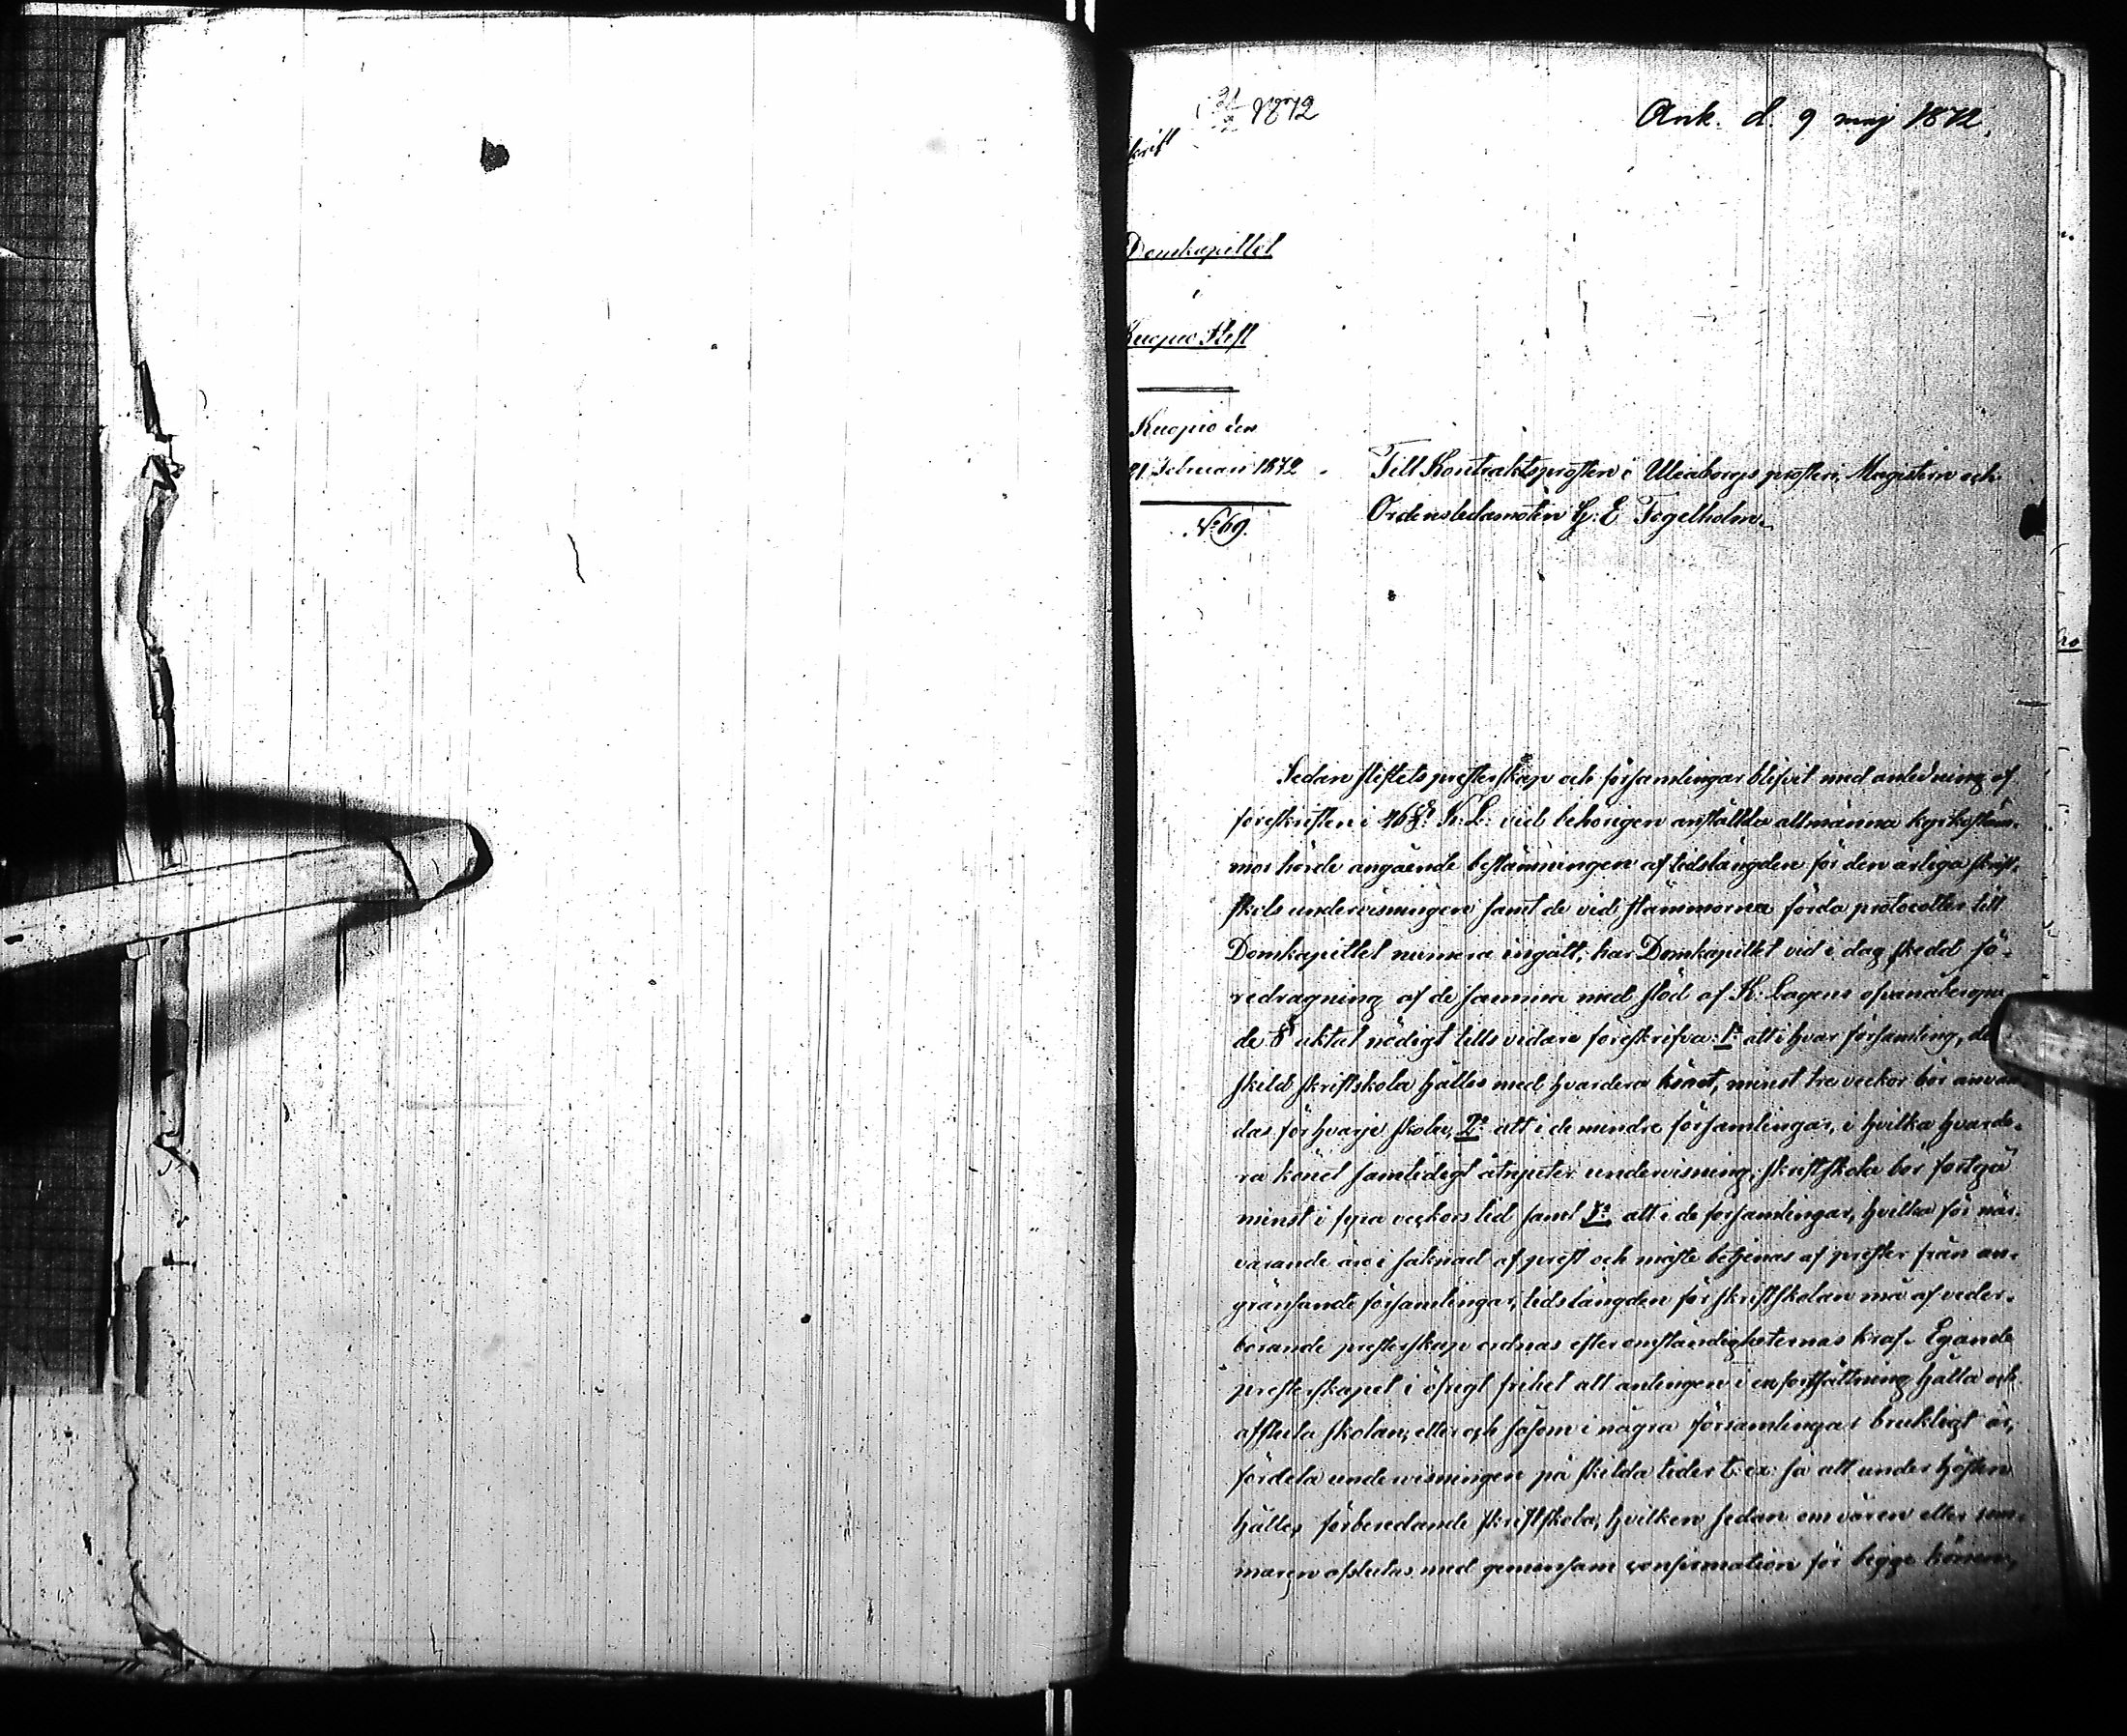 1872
Ank. d. 9 maj 1872.
krift
Domkapitlet
i
Kuopio Stift
Kuopio den
21 Februari 1872
Till Kontraktsprosten i Uleåborgs prosteri, Magistern och
N:o 69.
Ordensledamoten G: E Tegelholm.
Sedan stiftets presterskap och församlingar blifvit med anledning af
föreskriften i 46 §: K: L: vid behörigen anställda allmänna kyrkostäm-
mor hörde angående bestämningen af tidslängden för den årliga skrift-
skole undervisningen samt de vid stämmorna förda protocoller till
Domkapitlet numera ingått; har Domkapitlet vid i dag skedd fö-
redragning af desamma med stöd af K: Lagens ofvanaberopa-
de § aktat nödigt tillsvidare föreskrifva: 1:o att i hvar församling, de
skild skriftskola hålles med hvardera könet, minst tre veckor bör använ-
das för hvarje skola, 2:o att i de mindre församlingar, i hvilka hvarde-
ra könet samtidigt åtnjuter undervisning, skriftskola bör fortgå
minst i fyra veckors tid samt 3:o att i de församlingar, hvilka för när-
varande äro i saknad af prest och måste betjenas af prester från an-
gränsande församlingar, tidslängden för skriftskolan må af veder-
börande presterskap ordnas efter omständigheternas kraf. Egande
presterskapet i öfrigt frihet att antingen i en fortsättning hålla och
afsluta skolan, eller och såsom i några församlingar brukligt är,
fördela undervisningen på skilda tider t: ex: så att under hösten
hålles förberedande skriftskola, hvilken sedan om våren eller som-
maren afslutas med gemensam confirmation för begge könen,